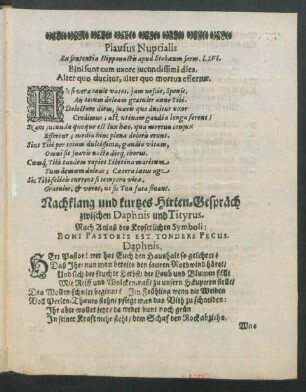 Plausus Nuptialis
Ex sententia Hipponactis apud Stobæum serm. LXVI.
Bini sunt cum uxore jucundissimi dies.
Alter quo ducitur, alter quo mortua effertur.
vera tanie vates, jam nescio, Sponse,
An tecum deleam gratuler anne Tibi.
Delectare diem, juvat quo ducitur uxor
Credimus; ast utinam gaudia longa forent!
Nam jucunda quoque est lux hæc, qua mortua conjux
Effertur; media hinc plena doloris erunt.
Sint Tibi per totam dulcissima, gaudia vitam,
Omni sit juvenis nocte dieq; thorus.
Cumq; Tibi tandem rapiet Libitina maritam
Tum demum deleas; Cætera lætus age.
Sic Tibi felicis current si tempora vitæ,
Gratulor, & voveo, ut sic Tua fata sinant.
Nachklang und kurtzes Hirten-Gespräch
zwischen Daphnis und Tityrus.
Nach Anlaß des Keyserlichen Symboli:
BONI PASTORIS EST TONDERE PECUS.
Daphnis.
HErr Pastor! wer hat Euch den Haushalt so gelehret?
Daß Ihr/ nun man bereits den sauren Nordwind höret/
Und sich der feuchte Herbst/ der Laub und Blumen fällt
Mit Reiff und Wolcken-naß zu unsern Häuptern stellt/
Den Wollen-schnitt beginnt? Im Frühling wenn die Weiden
Voll Perlen-Thaues stehn/ pflegt man das Vieh zu schneiden:
Ihr aber wollet jetzt/ da weder bunt noch grün
In seiner Krafft mehr steht/ dem Schaf den Rock abziehn.
Was